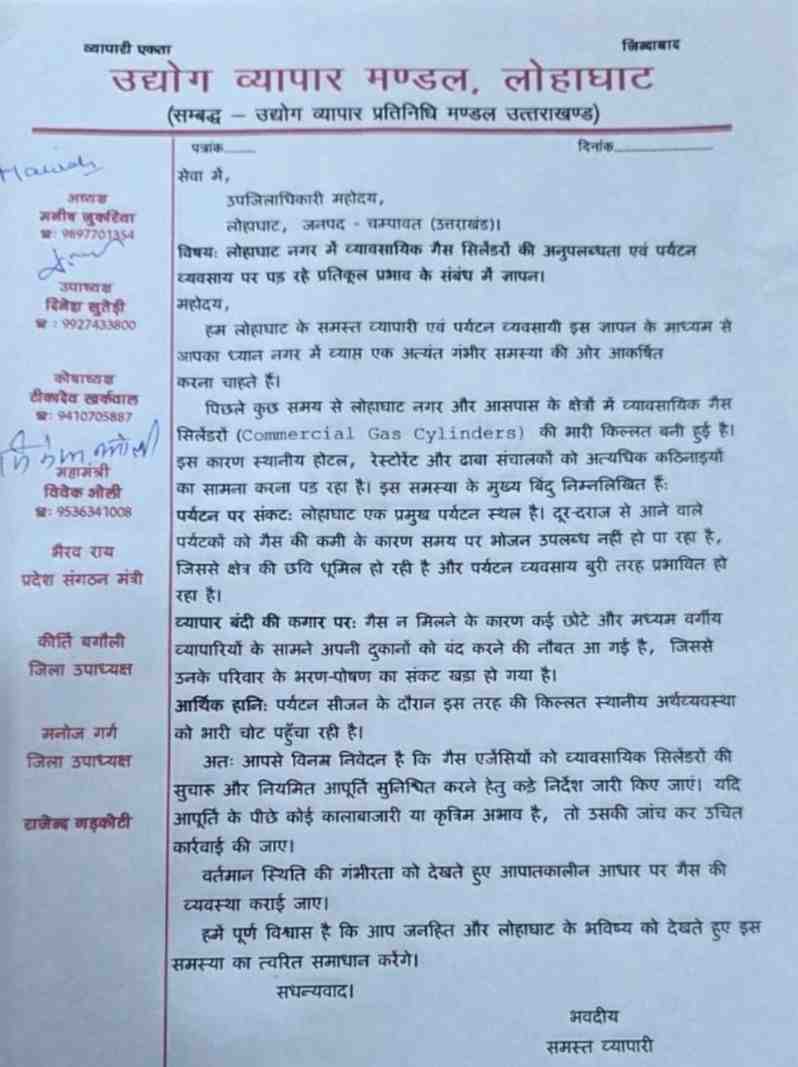 व्यापारी एकता जिन्दाबाद
उद्योग व्यापार मण्डल, लोहाघाट
(सम्बद्ध – उद्योग व्यापार प्रतिनिधि मण्डल उत्तराखण्ड)
पत्रांक........ दिनांक....................
Manish
अध्यक्ष
मनीष जुकरिया
☎: 9897701354
उपाध्यक्ष
दिनेश सुतेड़ी
☎ : 9927433800
कोषाध्यक्ष
टीकादेव खर्कवाल
☎: 9410705887
महामंत्री
विवेक ओली
☎: 9536341008
भैरव राय
प्रदेश संगठन मंत्री
कीर्ति बगौली
जिला उपाध्यक्ष
मनोज गर्ग
जिला उपाध्यक्ष
राजेन्द्र गड़कोटी
सेवा में,
उपजिलाधिकारी महोदय,
लोहाघाट, जनपद - चम्पावत (उत्तराखंड)।
विषय: लोहाघाट नगर में व्यावसायिक गैस सिलेंडरों की अनुपलब्धता एवं पर्यटन
व्यवसाय पर पड़ रहे प्रतिकूल प्रभाव के संबंध में ज्ञापन।
महोदय,
हम लोहाघाट के समस्त व्यापारी एवं पर्यटन व्यवसायी इस ज्ञापन के माध्यम से
आपका ध्यान नगर में व्याप्त एक अत्यंत गंभीर समस्या की ओर आकर्षित
करना चाहते हैं।
पिछले कुछ समय से लोहाघाट नगर और आसपास के क्षेत्रों में व्यावसायिक गैस
सिलेंडरों (Commercial Gas Cylinders) की भारी किल्लत बनी हुई है।
इस कारण स्थानीय होटल, रेस्टोरेंट और ढाबा संचालकों को अत्यधिक कठिनाइयों
का सामना करना पड रहा है। इस समस्या के मुख्य बिंदु निम्नलिखित हैं:
पर्यटन पर संकट: लोहाघाट एक प्रमुख पर्यटन स्थल है। दूर-दराज से आने वाले
पर्यटकों को गैस की कमी के कारण समय पर भोजन उपलब्ध नहीं हो पा रहा है,
जिससे क्षेत्र की छवि धूमिल हो रही है और पर्यटन व्यवसाय बुरी तरह प्रभावित हो
रहा है।
व्यापार बंदी की कगार पर: गैस न मिलने के कारण कई छोटे और मध्यम वर्गीय
व्यापारियों के सामने अपनी दुकानों को बंद करने की नौबत आ गई है, जिससे
उनके परिवार के भरण-पोषण का संकट खड़ा हो गया है।
आर्थिक हानि: पर्यटन सीजन के दौरान इस तरह की किल्लत स्थानीय अर्थव्यवस्था
को भारी चोट पहुँचा रही है।
अतः आपसे विनम्र निवेदन है कि गैस एजेंसियों को व्यावसायिक सिलेंडरों की
सुचारू और नियमित आपूर्ति सुनिश्चित करने हेतु कडे निर्देश जारी किए जाएं। यदि
आपूर्ति के पीछे कोई कालाबाजारी या कृत्रिम अभाव है, तो उसकी जांच कर उचित
कार्रवाई की जाए।
वर्तमान स्थिति की गंभीरता को देखते हुए आपातकालीन आधार पर गैस की
व्यवस्था कराई जाए।
हमें पूर्ण विश्वास है कि आप जनहित और लोहाघाट के भविष्य को देखते हुए इस
समस्या का त्वरित समाधान करेंगे।
सधन्यवाद।
भवदीय
समस्त व्यापारी